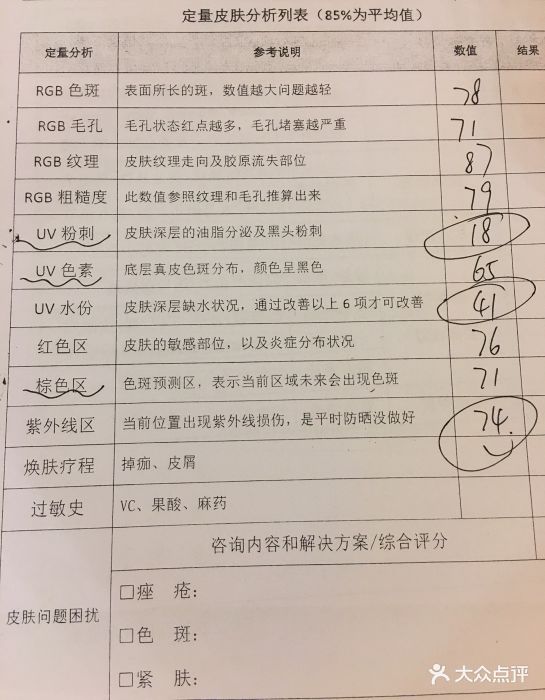 定量皮肤分析列表（85%为平均值）
定量分析 参考说明 数值 结果
RGB 色斑 表面所长的斑，数值越大问题越轻 78
RGB 毛孔 毛孔状态红点越多，毛孔堵塞越严重 71
RGB 纹理 皮肤纹理走向及胶原流失部位 87
RGB 粗糙度 此数值参照纹理和毛孔推算出来 79
UV 粉刺 皮肤深层的油脂分泌及黑头粉刺 18
UV 色素 底层真皮色斑分布，颜色呈黑色 65
UV 水份 皮肤深层缺水状况，通过改善以上 6 项才可改善 41
红色区 皮肤的敏感部位，以及炎症分布状况 76
棕色区 色斑预测区，表示当前区域未来会出现色斑 71
紫外线区 当前位置出现紫外线损伤，是平时防晒没做好 74
焕肤疗程 掉痂、皮屑
过敏史 VC、果酸、麻药
咨询内容和解决方案/综合评分
皮肤问题困扰
□痤 疮：
□色 斑：
□紧 肤：
大众点评